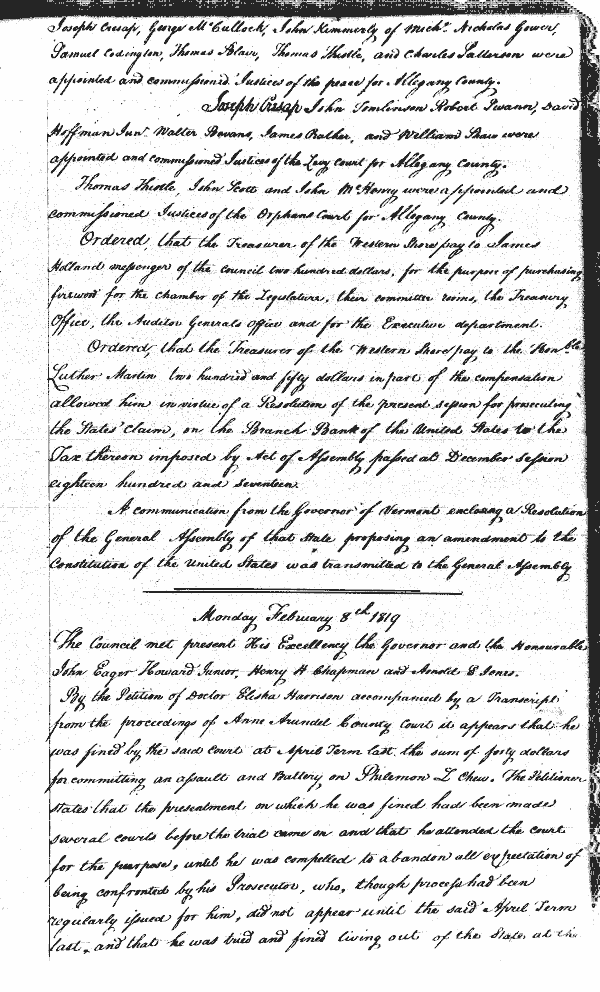 Joseph Cresap, George McCullock, John Kimmerly of Mich. Nicholas Gower,
Samuel Codington, Thomas Blair, Thomas Thistle, and Charles Patterson were
appointed and commissioned Justices of the peace for Allegany County.
Joseph Cresap John Tomlinson Robert Swann, David
Hoffman Junr. Walter Bevans, James Prather, and William Shaw were
appointed and commissioned Justices of the Levy Court for Allegany County.
Thomas Thistle, John Scott and John McHenry were appointed and
commissioned Justices of the Orphans Court for Allegany County.
Ordered, that the Treasurer of the Western Shore pay to James
Holland messenger of the council two hundred dollars, for the purpose of purchasing
firewood for the chamber of the Legislature, their committee rooms, the Treasury
Office, the Auditor Generals office and for the Executive department.
Ordered, that the Treasurer of the Western Shore pay to the Honble
Luther Martin two hundred and fifty dollars in part of the compensation
allowed him in virtue of a Resolution of the present session for prosecuting
the States' Claim, on the Branch Bank of the United States to the
Tax thereon imposed by Act of Assembly passed at December Session
eighteen hundred and seventeen.
A communication from the Governor of Vermont enclosing a Resolution
of the General Assembly of that State proposing an amendment to the
Constitution of the United States was transmitted to the General Assembly
Monday February 8th 1819
The Council met present His Excellency the Governor and the Honourable
John Eager Howard Junior, Henry H Chapman and Arnold E Jones.
By the Petition of Doctor Elisha Harrison accompanied by a Transcript
from the proceedings of Anne Arundel County Court it appears that he
was fined by the said Court at April Term last the sum of forty dollars
for committing an assault and Battery on Philemon L Chew. The Petitioner
states that the presentment on which he was fined had been made
several courts before the trial came on and that he attended the court
for the purpose, until he was compelled to abandon all expectation of
being confronted by his Prosecutor, who, though process had been
regularly issued for him, did not appear until the said April Term
last, and that he was tried and fined living out of the State at the